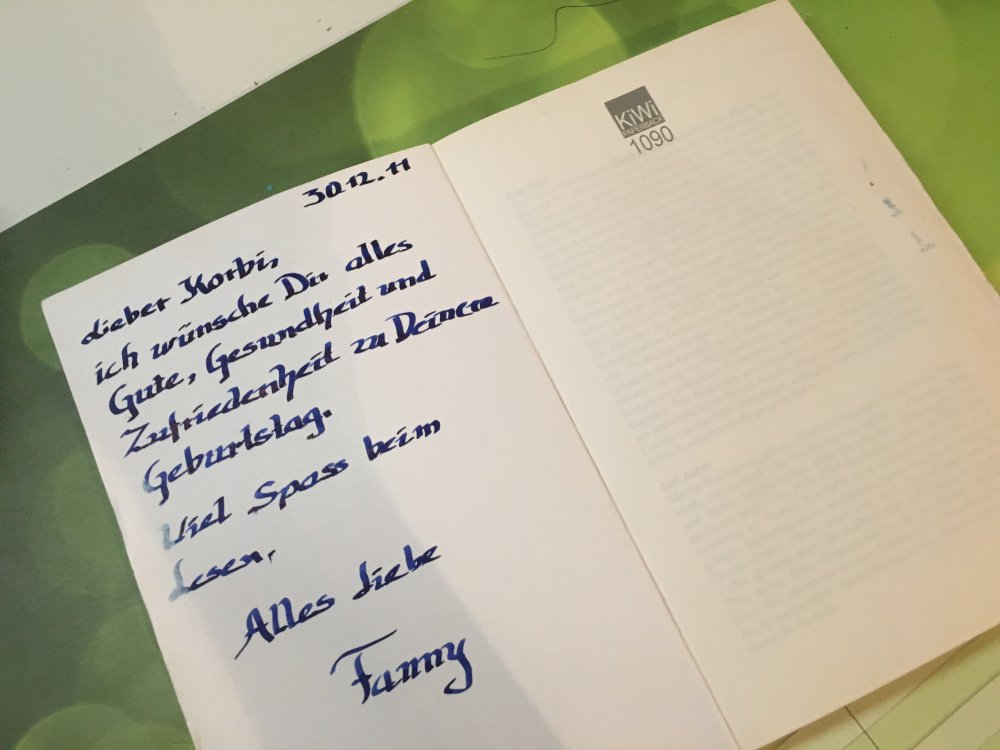 30.12.11
Lieber Korbi,
ich wünsche Dir alles
Gute, Gesundheit und
Zufriedenheit zu Deinem
Geburtstag.
Viel Spass beim
Lesen,
Alles Liebe
Fanny
KiWi
PAPERBACK
1090